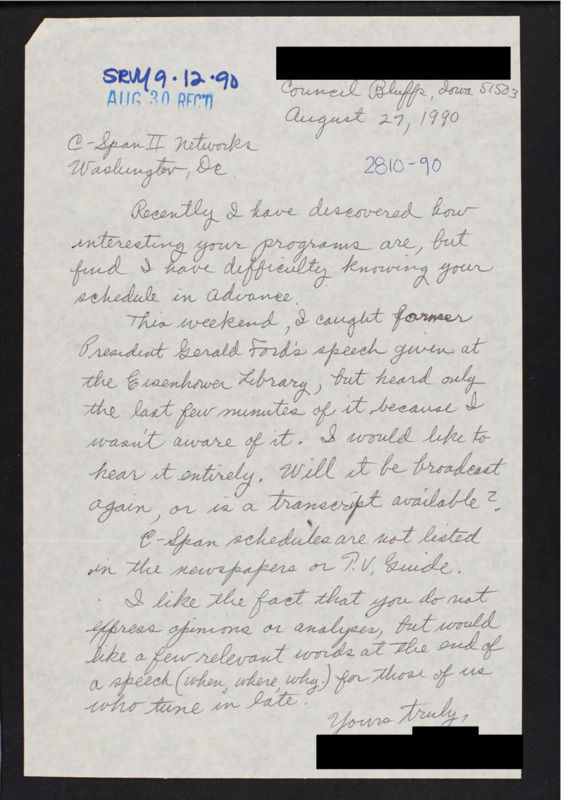 SRVY 9·12·90
AUG 30 REC'D
Council Bluffs, Iowa 51503
August 27, 1990
C-Span II Networks
Washington, DC
2810-90
Recently I have discovered how
interesting your programs are, but
find I have difficulty knowing your
schedule in advance.
This weekend, I caught former
President Gerald Ford's speech given at
the Eisenhower Library, but heard only
the last few minutes of it because I
wasn't aware of it. I would like to
hear it entirely. Will it be broadcast
again, or is a transcript available?
C-Span schedules are not listed
in the newspapers or T.V. Guide.
I like the fact that you do not
express opinions or analyses, but would
like a few relevant words at the end of
a speech (when, where, why.) for those of us
who tune in late.
Yours truly,